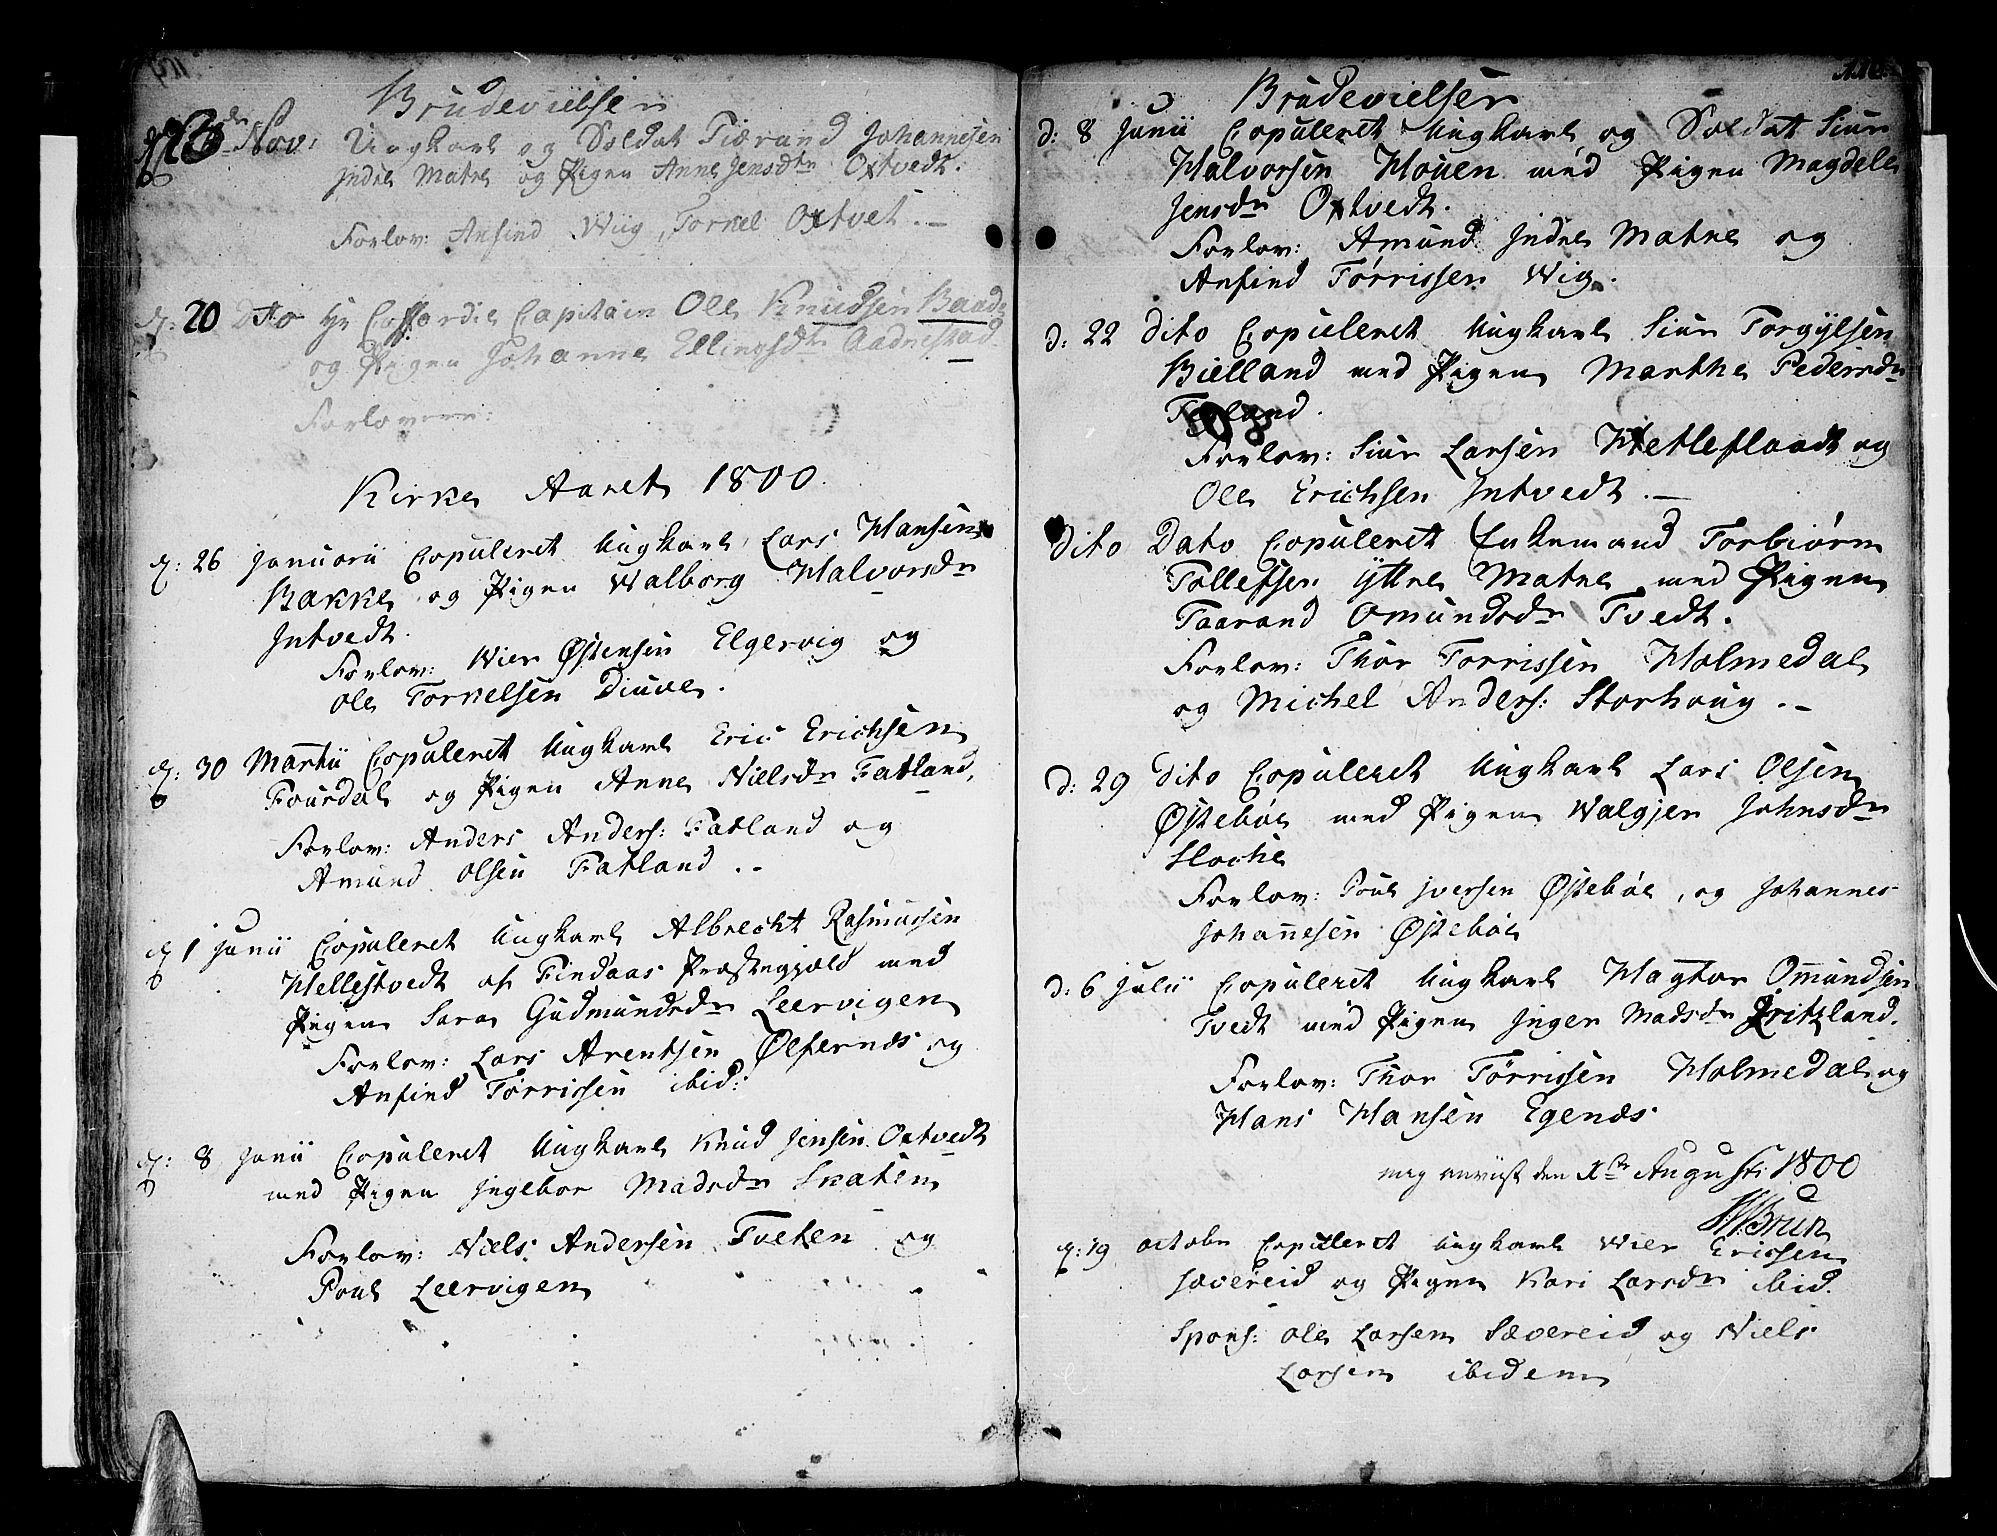 Brudevielser
Nov: Ungkarl og Soldat Tiærand Johannesen
Indre Matre og Pigen Anne Jensdtr Oxtvedt.
Forlov: Anfind Wiig, Torkel Oxtvet.
d: 20 Dito Hr Coffardie Capitain Ole Knudsen Baade
og Pigen Johanne Ellingsdtr Aadnestad
Forlovere:
Kirke Aaret 1800.
d: 26 Januarii Copuleret Ungkarl Lars Hansen
Bakke og Pigen Walborg Halvorsdr
Intvedt.
Forlov: Wier Østensen Elgervig og
Ole Torkelsen Diuve.
d: 30 Martii Copuleret Ungkarl Eric Erichsen
Fousdal og Pigen Anne Nielsdr Fatland,
Forlov: Anders Anders: Fatland og
Amund Olsen Fatland.
d 1 Junii Copuleret Ungkarl Albrecht Rasmussen
Hellestvedt af Findaas Præstegjæld med
Pigen Sara Gudmundsdr Leervigen
Forlov: Lars Arentsen Ølfernæs og
Anfind Tørrissen ibid:
d: 8 Junii Copuleret Ungkarl Knud Jensen Oxtvedt
med Pigen Ingebor Madsdr Skaten
Forlov: Niels Andersen Tveten og
Poul Leervigen
Brudevielser
d: 8 Junii Copuleret Ungkarl og Soldat Siur
Halvorsen Houen med Pigen Magdele
Jensdr Oxtvedt.
Forlov: Amund Indre Matre og
Anfind Tørrissen Wig.
d: 22 dito Copuleret Ungkarl Siur Torgylsen
Bielland med Pigen Marthe Pedersdr
Forlov: Siur Larsen Hetleflaadt og
Ole Erichsen Intvedt.
dito Dato Copuleret Enkemand Torbiørn
Tollefsen Yttre Matre med Pigen
Taarand Omundsdr Tvedt.
Forlov: Thor Torrissen Holmedal
og Michel Anders: Storhoug.
d: 29 dito Copuleret Ungkarl Lars Olsen
Østebøe med Pigen Walgjer Johnsdr
Sloche
Forlov: Poul Iversen Østebøe, og Johannes
Johannesen Østebøe
d: 6 Julii Copuleret Ungkarl Hagtor Omundsen
Tvedt med Pigen Inger Madsdr Kritzland.
Forlov: Thor Tørrissen Holmedal og
Hans Hansen Egenæs
den Xde Augusti 1800
Brun
d: 19 octobr Copuleret Ungkarl Wier Ericsen
Sævereid og Pigen Kari Larsdr ibid.
Spons: Ole Larsen Sævereid og Niels
Larsen ibidem